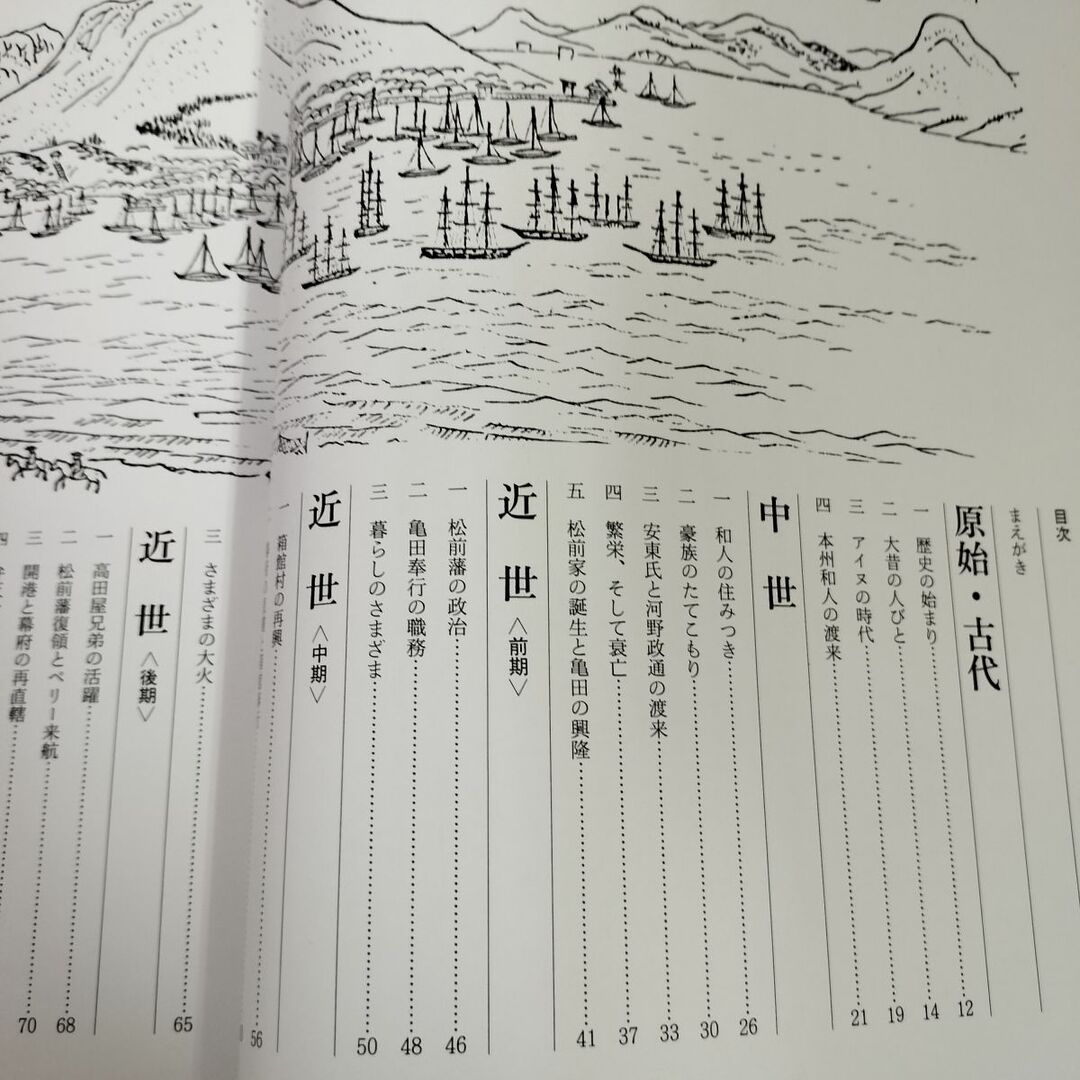 目次
まえがき
原始・古代
一 歴史の始まり 12
二 大昔の人びと 14
三 アイヌの時代 19
四 本州和人の渡来 21
中世
一 和人の住みつき 26
二 豪族のたてこもり 30
三 安東氏と河野政通の渡来 33
四 繁栄、そして衰亡 37
五 松前家の誕生と亀田の興隆 41
近世〈前期〉
一 松前藩の政治 46
二 亀田奉行の職務 48
三 暮らしのさまざま 50
近世〈中期〉
一 箱館村の再興 56
三 さまざまの大火 65
近世〈後期〉
一 高田屋兄弟の活躍 68
二 松前藩復領とペリー来航 70
三 開港と幕府の再直轄
四